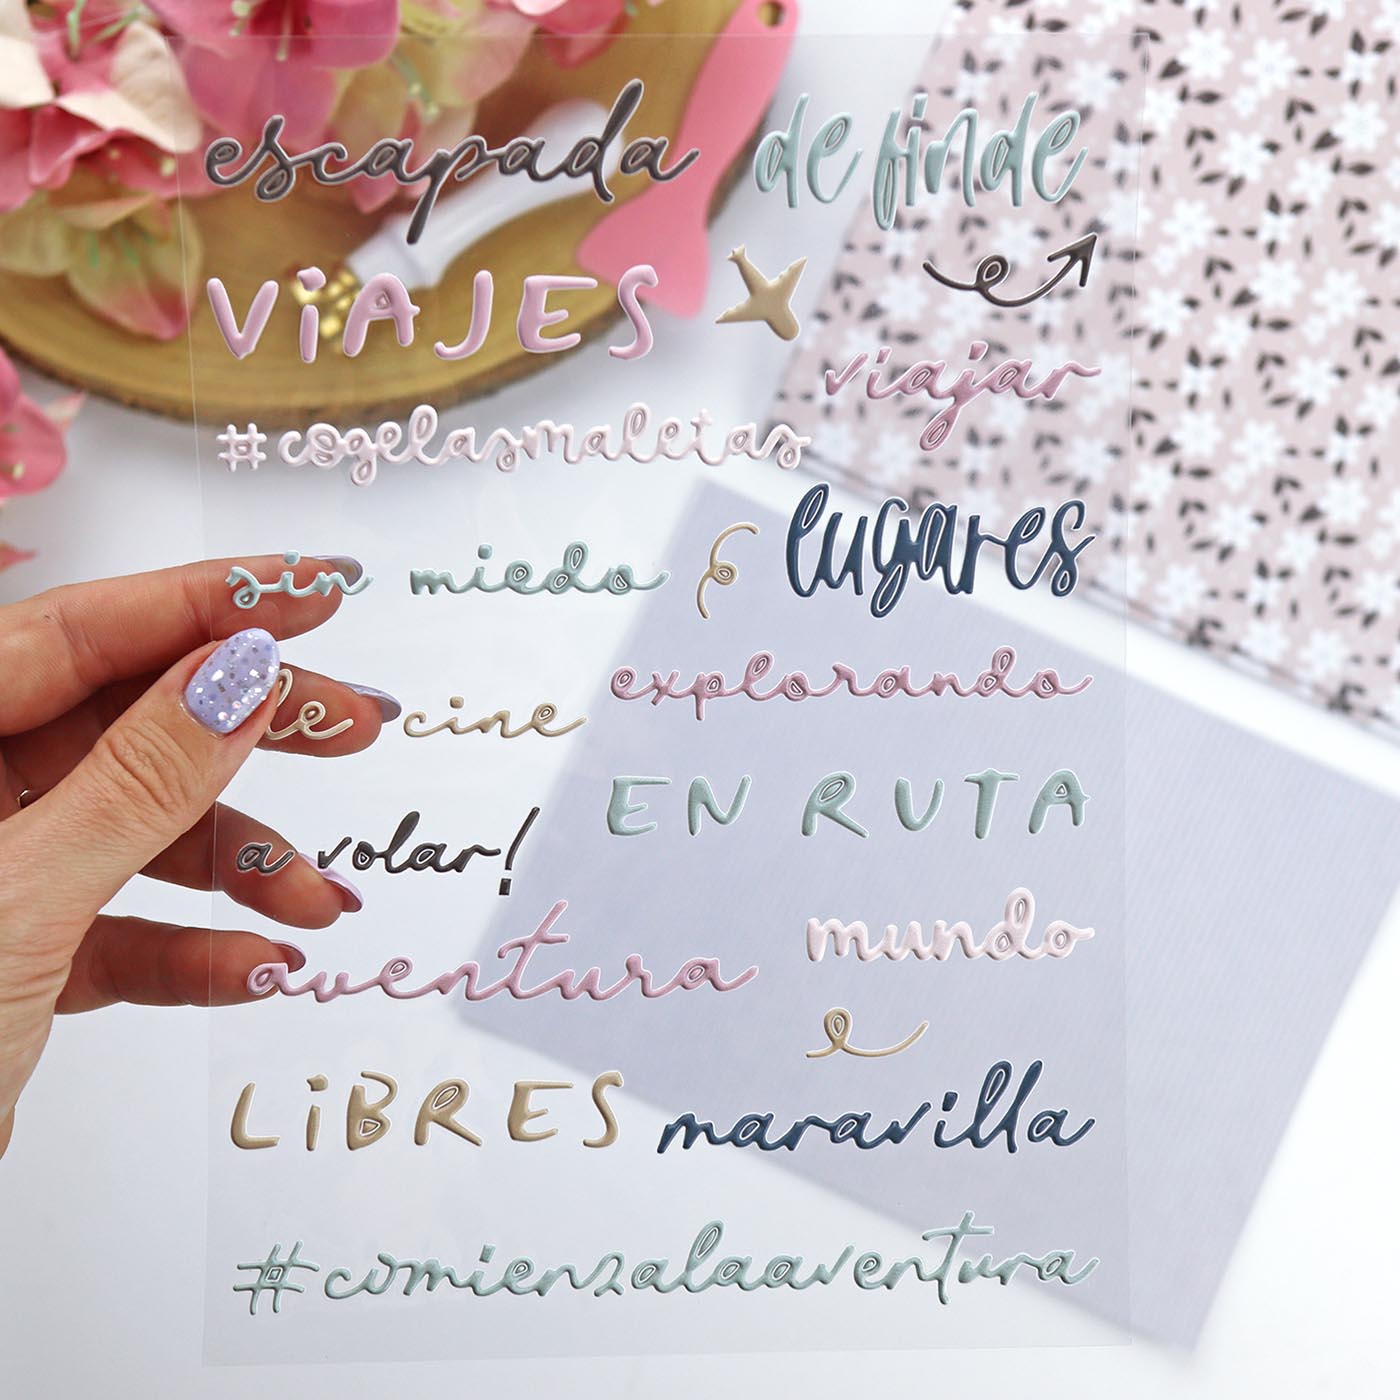 escapada
de finde
VIAJES
viajar
#cogelasmaletas
lugares
sin miedo
explorando
de cine
EN RUTA
a volar!
mundo
aventura
LIBRES
maravilla
#comienzalaaventura